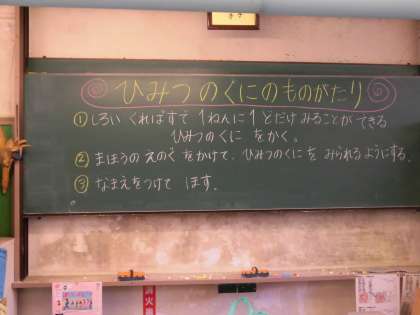 ひみつのくにのものがたり
①しろい くれぱすで 1ねんに1どだけ みることが できる
ひみつのくに をかく。
②まほうの えのぐ をかけて、ひみつのくにを みられるようにする。
③なまえをつけて ほす。
消火